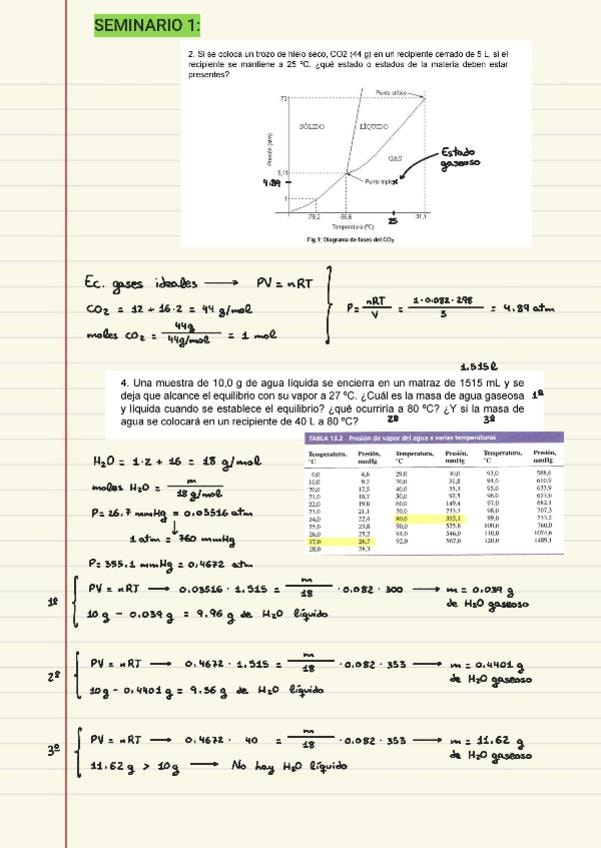 SEMINARIO 1:
2. Si se coloca un trozo de hielo seco, CO2 (44 g) en un recipiente cerrado de 5 L, si el
recipiente se mantiene a 25 ºC. ¿qué estado o estados de la materia deben estar
presentes?
73
Punto crítico
SÓLIDO
LÍQUIDO
Presión (atm)
GAS
Estado
gaseoso
5,11
4.89
Punto triple
1
-78,2
-56,6
25
31,1
Temperatura (ºC)
Fig.1: Diagrama de fases del CO2
Ec. gases ideales → PV = nRT
CO2 = 12 + 16·2 = 44 g/mol
moles CO2 = 44g / 44g/mol = 1 mol
P = nRT / V = 1·0.082·298 / 5 = 4.89 atm
1.515 l
4. Una muestra de 10,0 g de agua líquida se encierra en un matraz de 1515 mL y se
deja que alcance el equilibrio con su vapor a 27 ºC. ¿Cuál es la masa de agua gaseosa 1º
y líquida cuando se establece el equilibrio? ¿qué ocurriría a 80 ºC? ¿Y si la masa de
2º 3º
agua se colocará en un recipiente de 40 L a 80 ºC?
TABLA 13.2 Presión de vapor del agua a varias temperaturas
Temperatura, ºC Presión, mmHg Temperatura, ºC Presión, mmHg Temperatura, ºC Presión, mmHg
80,0 355,1
27,0 26,7
H2O = 1·2 + 16 = 18 g/mol
moles H2O = m / 18 g/mol
P = 26,7 mmHg = 0.03516 atm
1 atm = 760 mmHg
P = 355,1 mmHg = 0,4672 atm
1º
PV = nRT → 0.03516 · 1.515 = m/18 · 0.082 · 300 → m = 0.039 g
de H2O gaseoso
10 g - 0.039 g = 9.96 g de H2O líquido
2º
PV = nRT → 0.4672 · 1.515 = m/18 · 0.082 · 353 → m = 0.4401 g
de H2O gaseoso
10g - 0.4401 g = 9.56 g de H2O líquido
3º
PV = nRT → 0.4672 · 40 = m/18 · 0.082 · 353 → m = 11.62 g
de H2O gaseoso
11.62 g > 10g → No hay H2O líquido